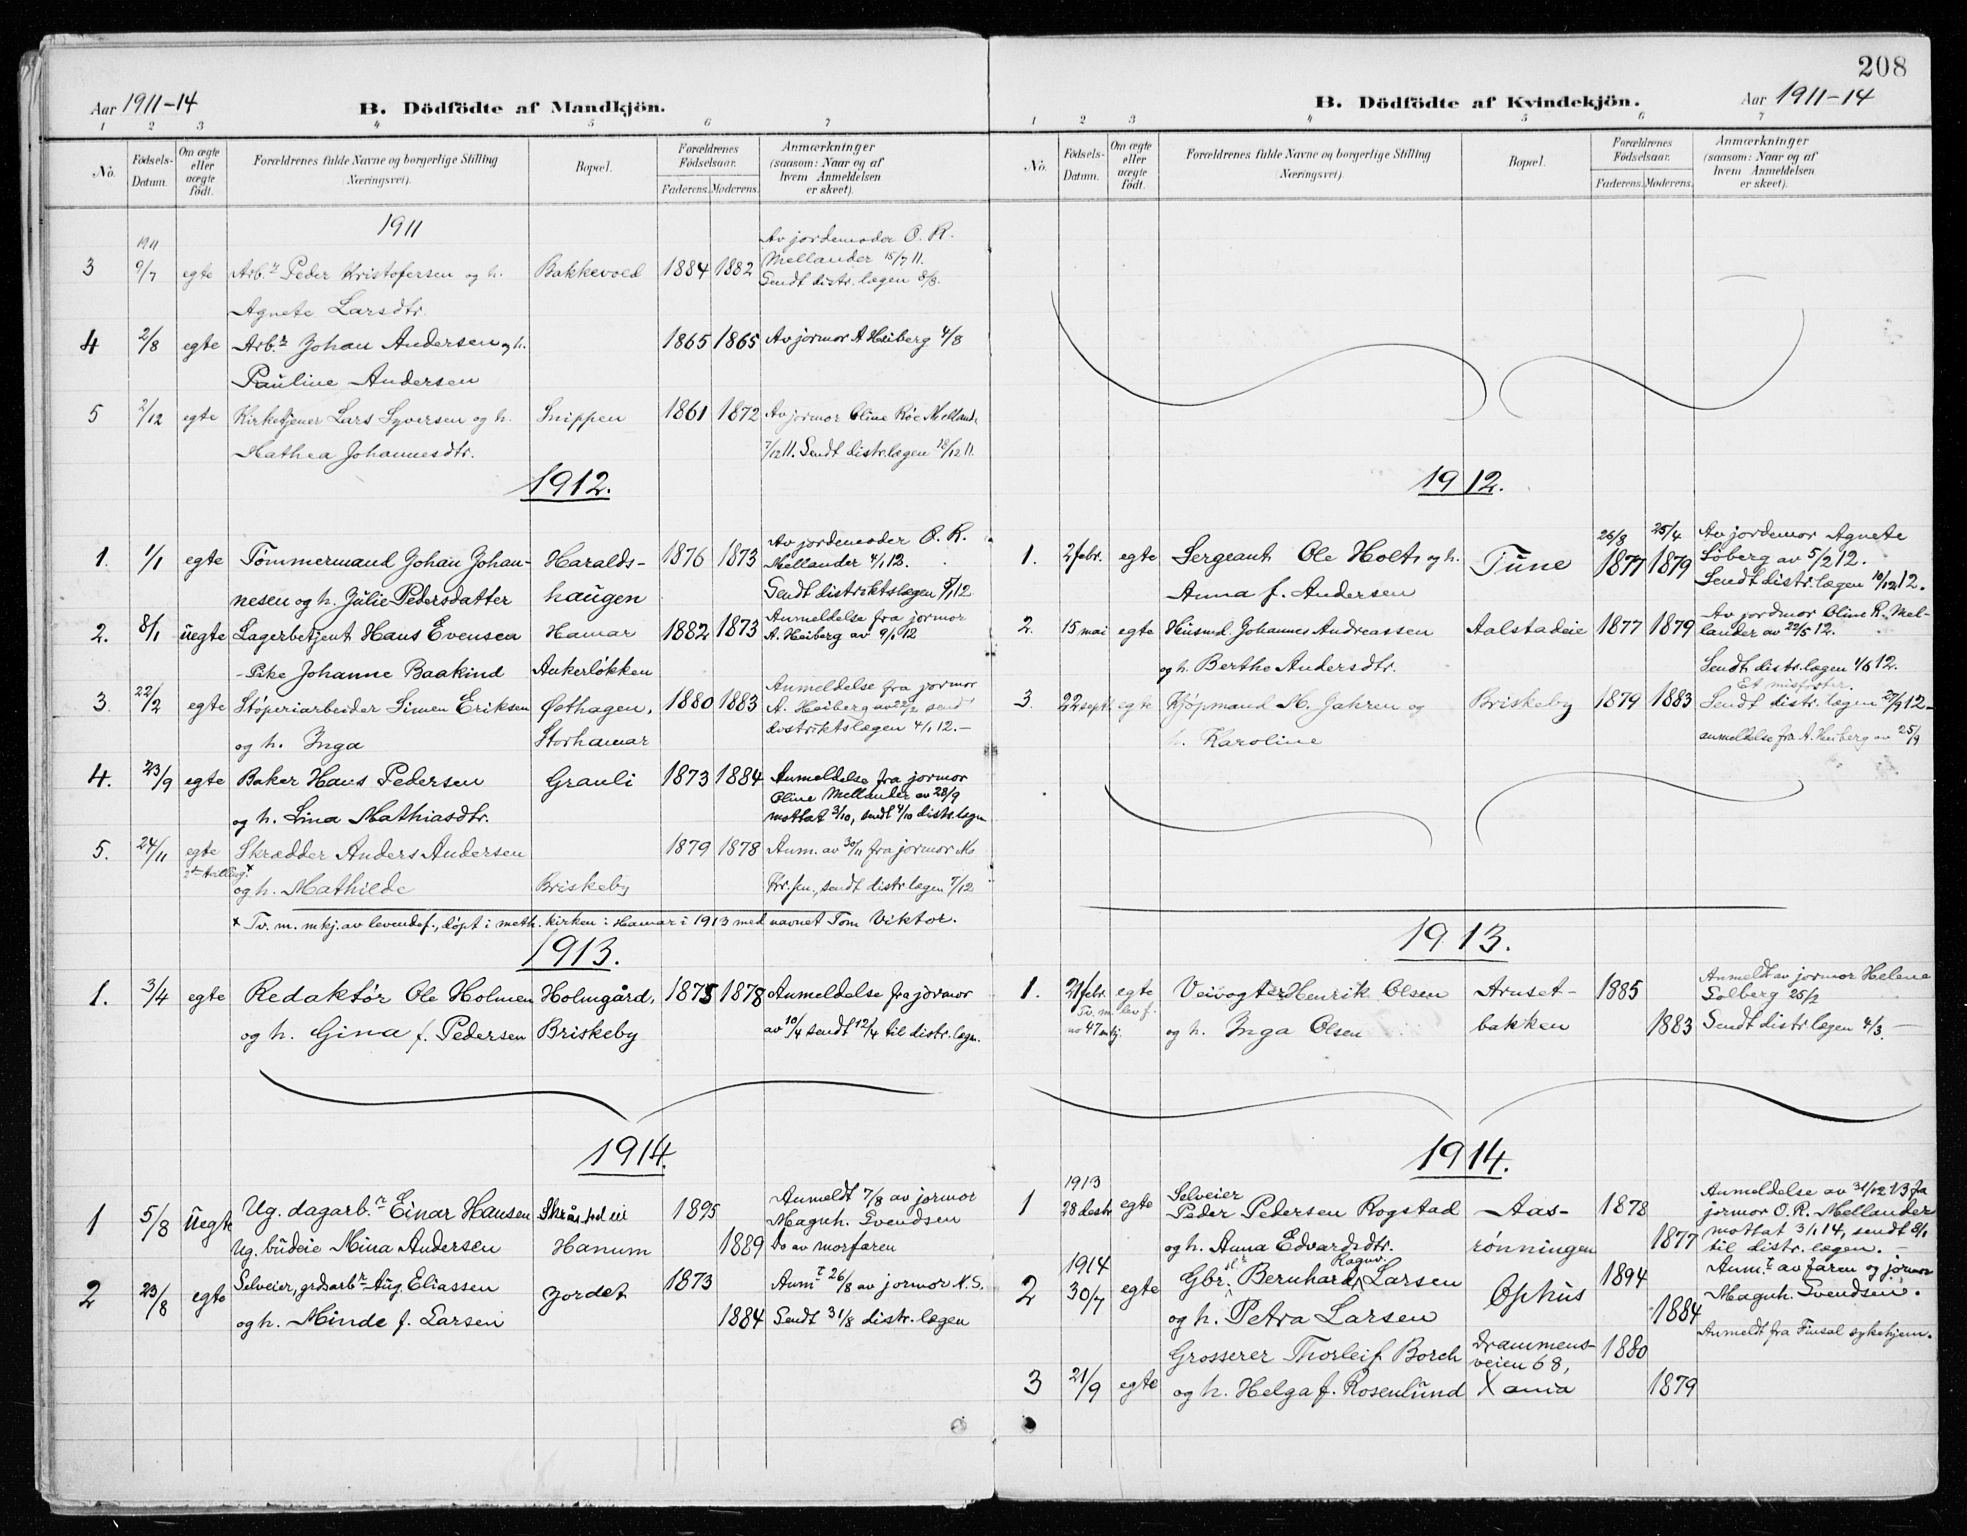 208
Aar 1911-14
B. Dödfödte af Mandkjön.
1 2 3 4 5 6 7
No.
Födsels-
Datum.
Om ægte
eller
uægte
födt.
Forældrenes fulde Navne og borgerlige Stilling
(Næringsvei).
Bopæl.
Forældrenes
Födselsaar.
Faderens. Moderens.
Anmærkninger
(saasom: Naar og af
hvem Anmeldelsen
er skeet).
1911
1911
Av jordemoder O. R.
3 9/7 egte Arb.r Peder Kristofersen og h. Bakkevold 1884 1882 Mellander 15/7 11.
Sendt distr. lægen 8/8.
Agnete Larsdtr.
4 2/8 egte Arb.r Johan Andersen og h. 1865 1865 Av jormor A Heiberg 4/8
Pauline Andersen
5 2/12 egte Kirketjener Lars Syversen og h. Snippen 1861 1872 Av jormor Oline Röe Melland.
Mathea Johannesdtr. 7/12 11. Sendt distr. lægen 18/12 11.
1912.
Av jordemoder O. R.
1. 1/1 egte Tömmermand Johan Johan- Haralds- 1876 1873 Mellander 4/1 12.
nesen og h. Julie Pedersdatter haugen Sendt distriktslægen 8/1 12
2. 8/1 uegte Lagerbetjent Hans Evensen Hamar 1882 1873 Anmeldelse fra jormor
A. Heiberg av 9/1 12
- Pike Johanne Baakind Ankerløkken
3. 22/2 egte Støperiarbeider Simen Eriksen Østhagen, 1880 1883 Anmeldelse fra jormor
A. Heiberg av 22/2 sendt
og h. Inga Storhamar distriktslægen 4/1 12. —
4. 23/9 egte Baker Hans Pedersen Granli 1873 1884 Anmeldelse fra jormor
Oline Mellander av 28/9
og h. Lina Mathiasdtr. mottat 3/10, sendt 4/10 distr. lægen
5. 24/11 egte Skrædder Anders Andersen 1879 1878 Anm. av 30/11 fra jormor
og h. Mathilde Briskeby sendt distr. lægen 7/12
x Tv. m. mkj. av levendef., døpt i meth. kirken i Hamar i 1913 med navnet Tom Viktor.
1913.
1. 3/4 egte Redaktør Ole Holmen Holmgård, 1875 1878 Anmeldelse fra jormor
og h. Gina f. Pedersen Briskeby av 10/4 sendt 12/4 til distr. lægen.
1914.
1 5/8 uegte Ug. dagarb.r Einar Hansen 1895 Anmeldt 7/8 av jormor
Magnh. Svendsen
Ug. budeie Mina Andersen Hanum 1889 Do av morfaren
2 23/8 egte Selveier, grdsarb.r Aug. Eliassen Jordet 1873 Anm.t 26/8 av jormor M. S.
og h. Minde f. Larsen 1884 Sendt 31/8 distr. lægen
B. Dödfödte af Kvindekjön.
Aar 1911-14
1 2 3 4 5 6 7
No.
Födsels-
Datum.
Om ægte
eller
uægte
födt.
Forældrenes fulde Navne og borgerlige Stilling
(Næringsvei).
Bopæl.
Forældrenes
Födselsaar.
Faderens. Moderens.
Anmærkninger
(saasom: Naar og af
hvem Anmeldelsen
er skeet).
1912.
26/8 25/4 Av jordemor Agnete
1. 2 febr. egte Sergeant Ole Holt og h. Tune 1877 1879 Söberg av 5/2 12.
Anna f. Andersen Sendt distr. lægen 10/2 12.
2. 15 mai egte Husmd. Johannes Andreassen Aalstadeie 1877 1879 Av jordmor Oline R. Mel-
lander av 22/5 12.
og h. Berthe Andersdtr. Sendt distr. lægen 1/6 12.
Et misfoster.
3. 22 sept. egte Kjøpmand M. Jahren og Briskeby 1879 1883 Sendt distr. lægen 27/9 12 -
h. Karoline anmeldelse fra A. Heiberg av 25/9
1913.
1. 21 febr. egte Veivogter Henrik Olsen Aruset- 1885 Anmeldt av jormor Helene
Solberg 25/2
Tv. m. lev f.
no 47 mkj. og h. Inga Olsen bakken 1883 Sendt distr. lægen 4/3. —
1914.
1913
Selveier Anmeldelse av 31/12 13 fra
1 28 desbr egte Peder Pedersen Rogstad Aas- 1878 jormor O. R. Mellander
mottat 3/1 14, sendt 8/1
og h. Anna Edvardsdtr. rönningen 1877 til distr. lægen. —
1914
Ragnv.
2 30/7 egte Gbr. Bernhard Larsen Ophus 1894 Anm.t av faren og jormor
Magnh. Svendsen.
og h. Petra Larsen 1884
Anmeldt fra Finsal sykehjem.
Grosserer Thorleif Borch Drammens- 1880
veien 68,
3 21/9 egte og h. Helga f. Rosenlund Xania 1879